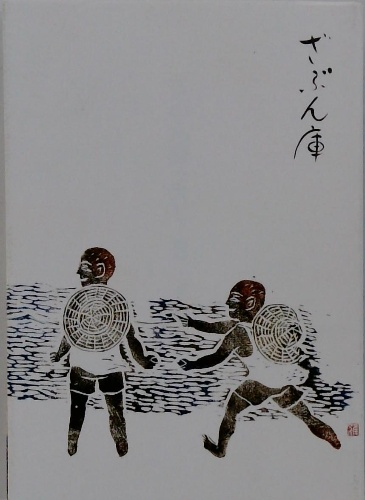 ざぶん庫